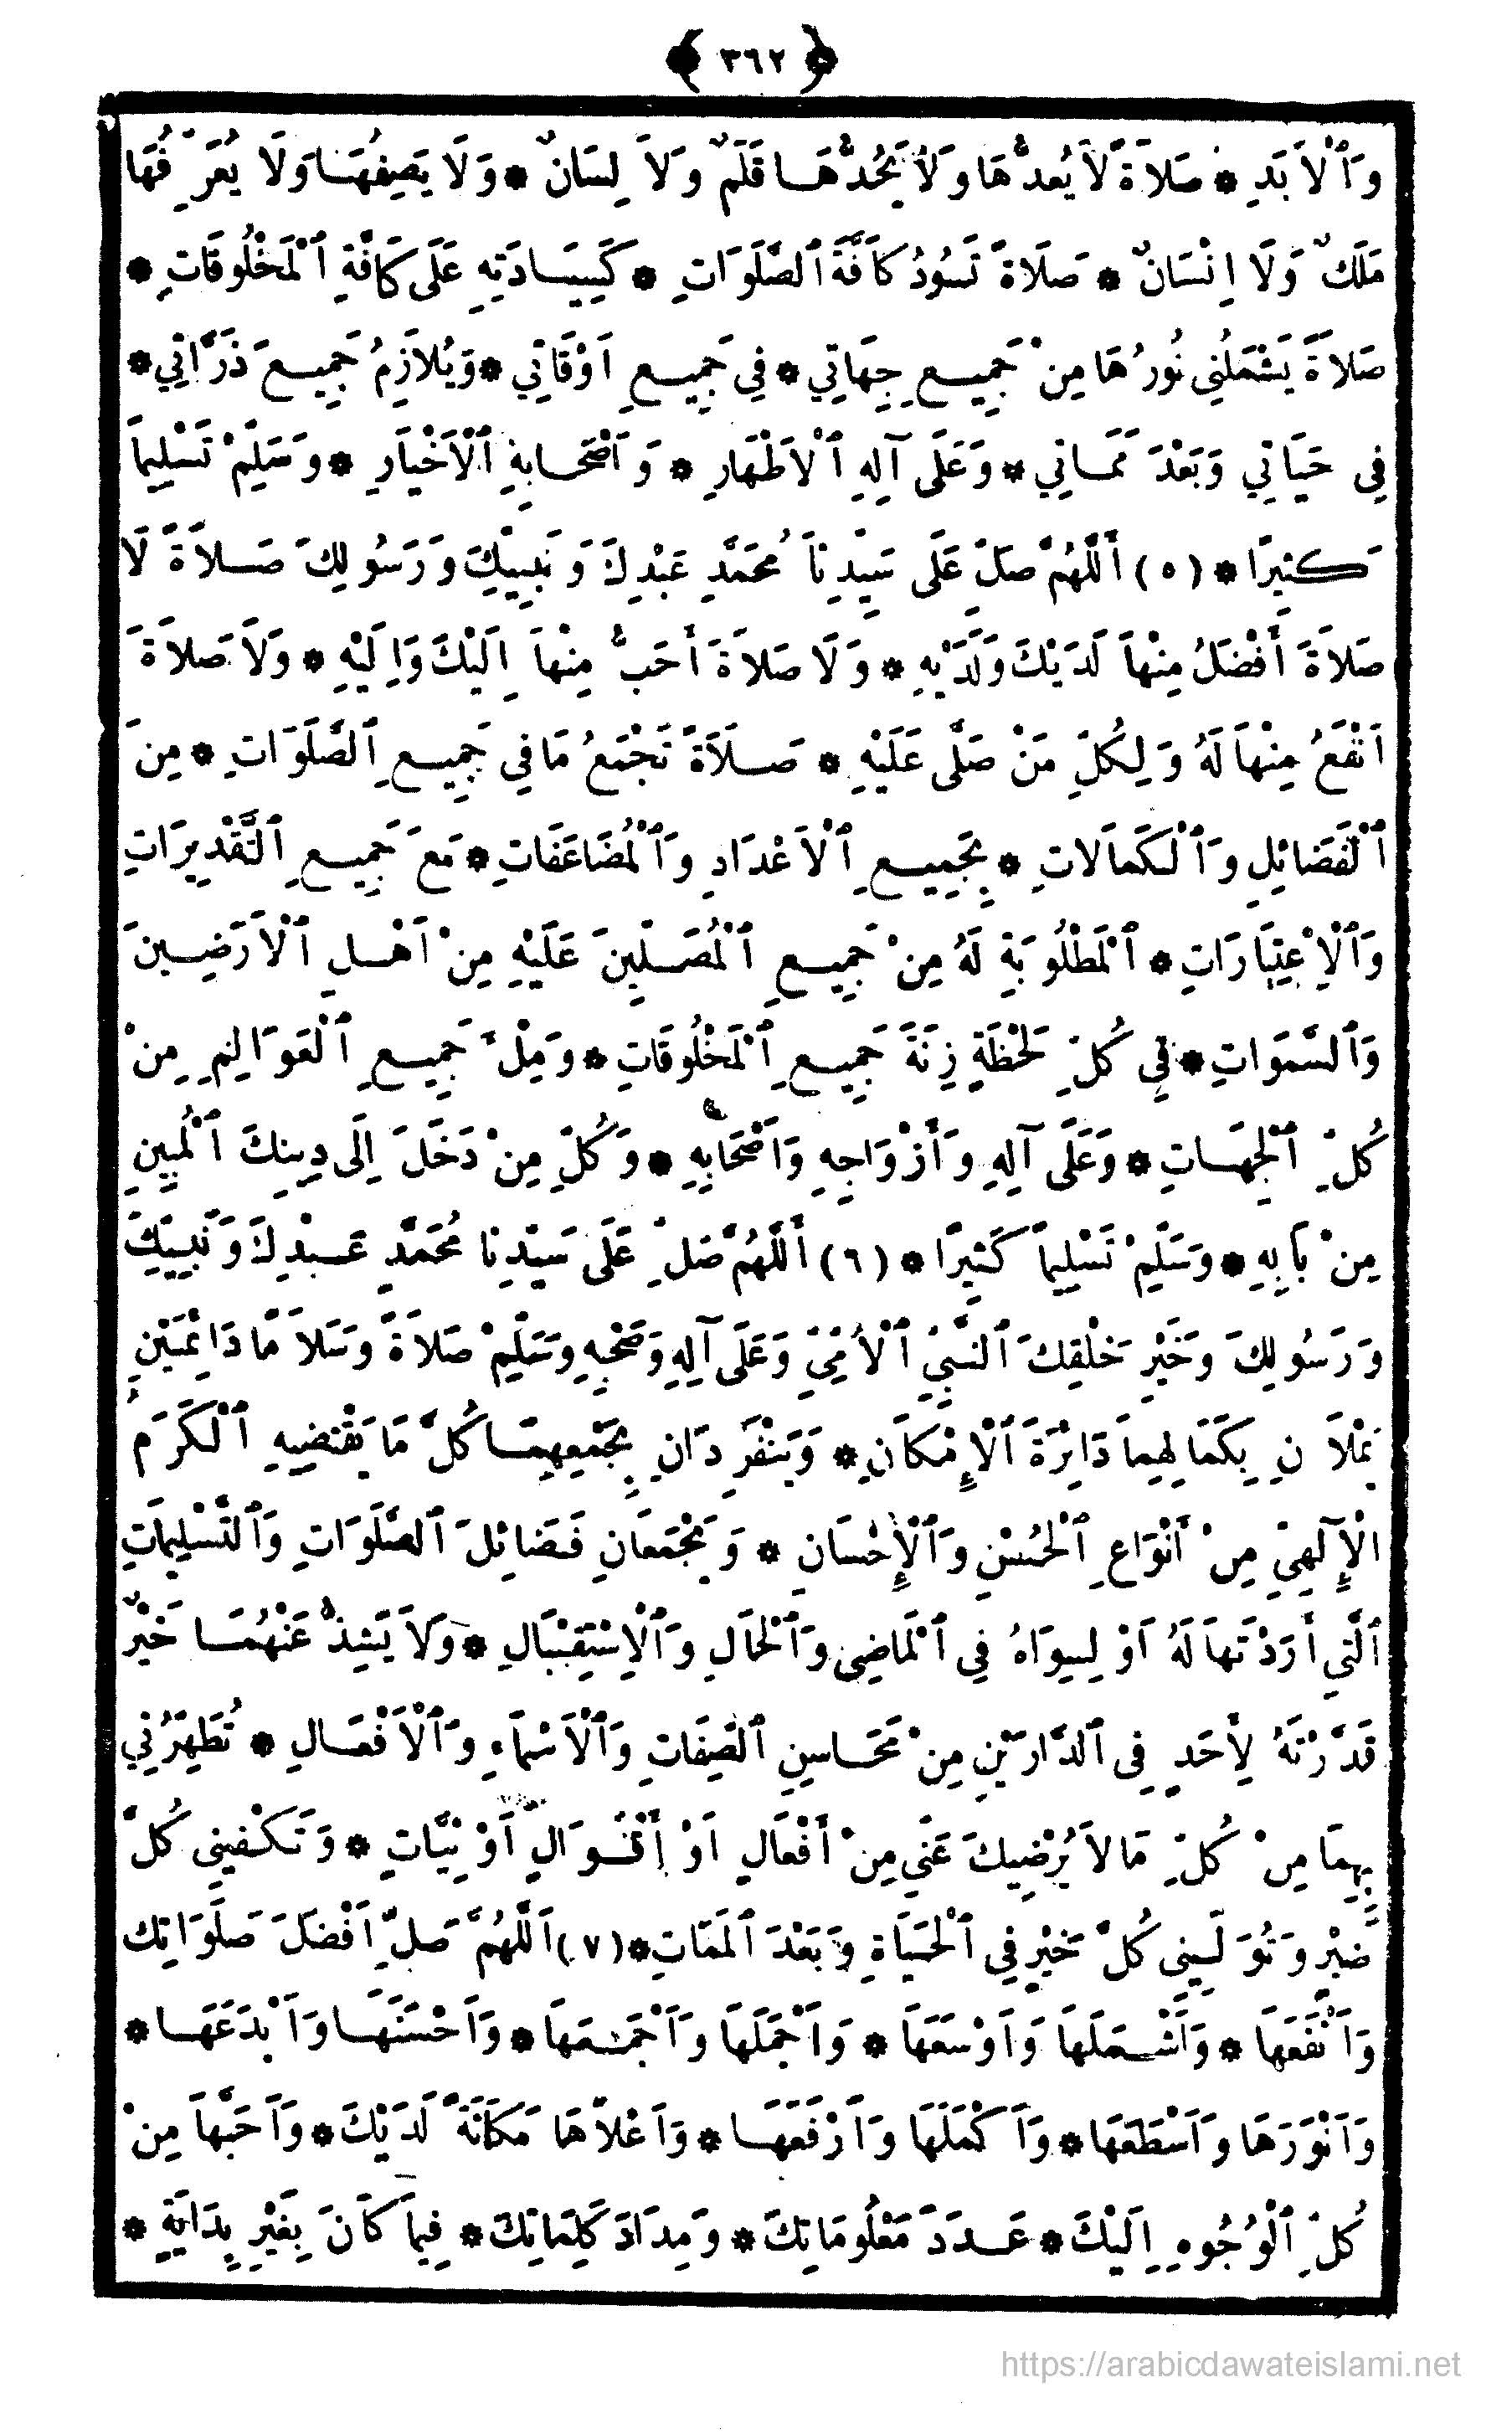 ﴿ ٣٦٢ ﴾
وَٱلْأَبَدِ * صَلاَةً لاَ يُعدُّهَا وَلاَ يَحُدُّهَا قَلَمٌ وَلاَ لِسَانٌ * وَلَا يَصِفُهَا وَلَا يُعَرِّفُهَا
مَلَكٌ وَلَا اِنْسَانٌ * صَلَاةً تَسُودُ كَافَّةَ ٱلصَّلَوَاتِ * كَسِيَادَتِهِ عَلَى كَافَّةِ ٱلْمَخْلُوقَاتِ *
صَلاَةً يَشْمَلُنِى نُورُهَا مِنْ جَمِيعِ جِهَاتِي * فِي جَمِيعِ اَوْقَاتِي * وَيُلاَزِمُ جَمِيعَ ذَرَّاتِي *
فِى حَيَاتِي وَبَعْدَ مَمَاتِي * وَعَلَى آلِهِ ٱلْاَطْهَارِ * وَاَصْحَابِهِ ٱلْاَخْيَارِ * وَسَلِّمْ تَسْلِيماً
كَثِيرًا * (٥) أَللّٰهُمَّ صَلِّ عَلَى سَيِّدِنَا مُحَمَّدٍ عَبْدِكَ وَنَبِيِّكَ وَرَسُولِكَ صَلاَةً لَا
صَلاَةَ أَفْضَلُ مِنْهاَ لَدَيْكَ وَلَدَيْهِ * وَلَا صَلاَةَ أَحَبُّ مِنْهاَ اِلَيْكَ وَاِلَيْهِ * وَلاَ صَلاَةَ
اَنْفَعُ مِنْهاَ لَهُ وَلِكُلِّ مَنْ صَلَّى عَلَيْهِ * صَلاَةً تَجْمَعُ مَا فِي جَمِيعِ ٱلصَّلَوَاتِ * مِنَ
ٱلْفَضَائِلِ وَٱلْكَمَالَاتِ * بِجَمِيعِ ٱلْاَعْدَادِ وَٱلْمُضَاعَفَاتِ * مَعَ جَمِيعِ ٱلتَّقْدِيرَاتِ
وَٱلْاِعْتِبَارَاتِ * ٱلْمَطْلُوبَةِ لَهُ مِنْ جَمِيعِ ٱلْمُصَلِّينَ عَلَيْهِ مِنْ اَهْلِ ٱلْاَرَضِينَ
وَٱلسَّمَوَاتِ * فِي كُلِّ لَحْظَةٍ زِنَةَ جَمِيعِ ٱلْمَخْلُوقَاتِ * وَمِلْءَ جَمِيعِ ٱلْعَوَالِمِ مِنْ
كُلِّ ٱلْجِهَاتِ * وَعَلَى آلِهِ وَأَزْوَاجِهِ وَاَصْحَابِهِ * وَكُلِّ مِنْ دَخَلَ اِلَى دِينِكَ ٱلْمُبِينِ
مِنْ بَابِهِ * وَسَلِّمْ تَسْلِيماً كَثِيرًا * (٦) أَللّٰهُمَّ صَلِّ عَلَى سَيِّدِنَا مُحَمَّدٍ عَبْدِكَ وَنَبِيِّكَ
وَرَسُولِكَ وَخَيْرِ خَلْقِكَ ٱلنَّبِيِّ ٱلْأُمِّيِّ وَعَلَى آلِهِ وَصَحْبِهِ وَسَلِّمْ صَلاَةً وَسَلاَمًا دَائِمَيْنِ
يَمْلَآنِ بِكَمَالِهِمَا دَائِرَةَ ٱلْإِمْكَانِ * وَيَنْفَرِدَانِ بِجَمْعِهِمَا كُلَّ مَا يَقْتَضِيهِ ٱلْكَرَمُ
الْإِلٓهِيّ مِنْ أَنْوَاعِ ٱلْحُسْنِ وَٱلْإِحْسَانِ * وَيَجْمَعَانِ فَضَائِلَ ٱلصَّلَوَاتِ وَٱلتَّسْلِيمَاتِ
ٱلَّتِي أَرَدْتَهَا لَهُ اَوْ لِسِوَاهُ فِى ٱلْمَاضِى وَٱلْحَالِ وَٱلْاِسْتِقْبَالِ * وَلاَ يَشِذُّ عَنْهُمَا خَيْرٌ
قَدَّرْتَهُ لِأَحَدٍ فِى ٱلدَّارَيْنِ مِنْ مَحَاسِنِ ٱلصِّفَاتِ وَٱلْاَسْمَاءِ وَٱلْاَفْعَالِ * تُطَهِّرُنِي
بِهِمَا مِنْ كُلِّ مَا لاَ يُرْضِيكَ عَنِّي مِنْ أَفْعَالٍ اَوْ أَقْوَالٍ اَوْ نِيَّاتٍ * وَتَكْفِينِى كُلَّ
ضَيْرٍ وَتُوَلِّينِى كُلَّ خَيْرٍ فِي ٱلْحَيَاةِ وَبَعْدَ ٱلْمَمَاتِ * (٧) اَللّٰهُمَّ صَلِّ اَفْضَلَ صَلَوَاتِكَ
وَاَنْفَعَهَا * وَاَشْمَلَهَا وَاَوْسَعَهَا * وَاَجْمَلَهَا وَاَجْمَعَهَا * وَاَحْسَنَهَا وَاَبْدَعَهَا *
وَاَنْوَرَهَا وَاَسْطَعَهَا * وَاَكْمَلَهَا وَاَرْفَعَهَا * وَاَعْلاَهَا مَكَانَةً لَدَيْكَ * وَاَحَبَّهاَ مِنْ
كُلِّ ٱلْوُجُوهِ اِلَيْكَ * عَدَدَ مَعْلُومَاتِكَ * وَمِدَادَ كَلِمَاتِكَ * فِيمَا كَانَ بِغَيْرِ بِدَايَةٍ *
https://arabicdawateislami.net